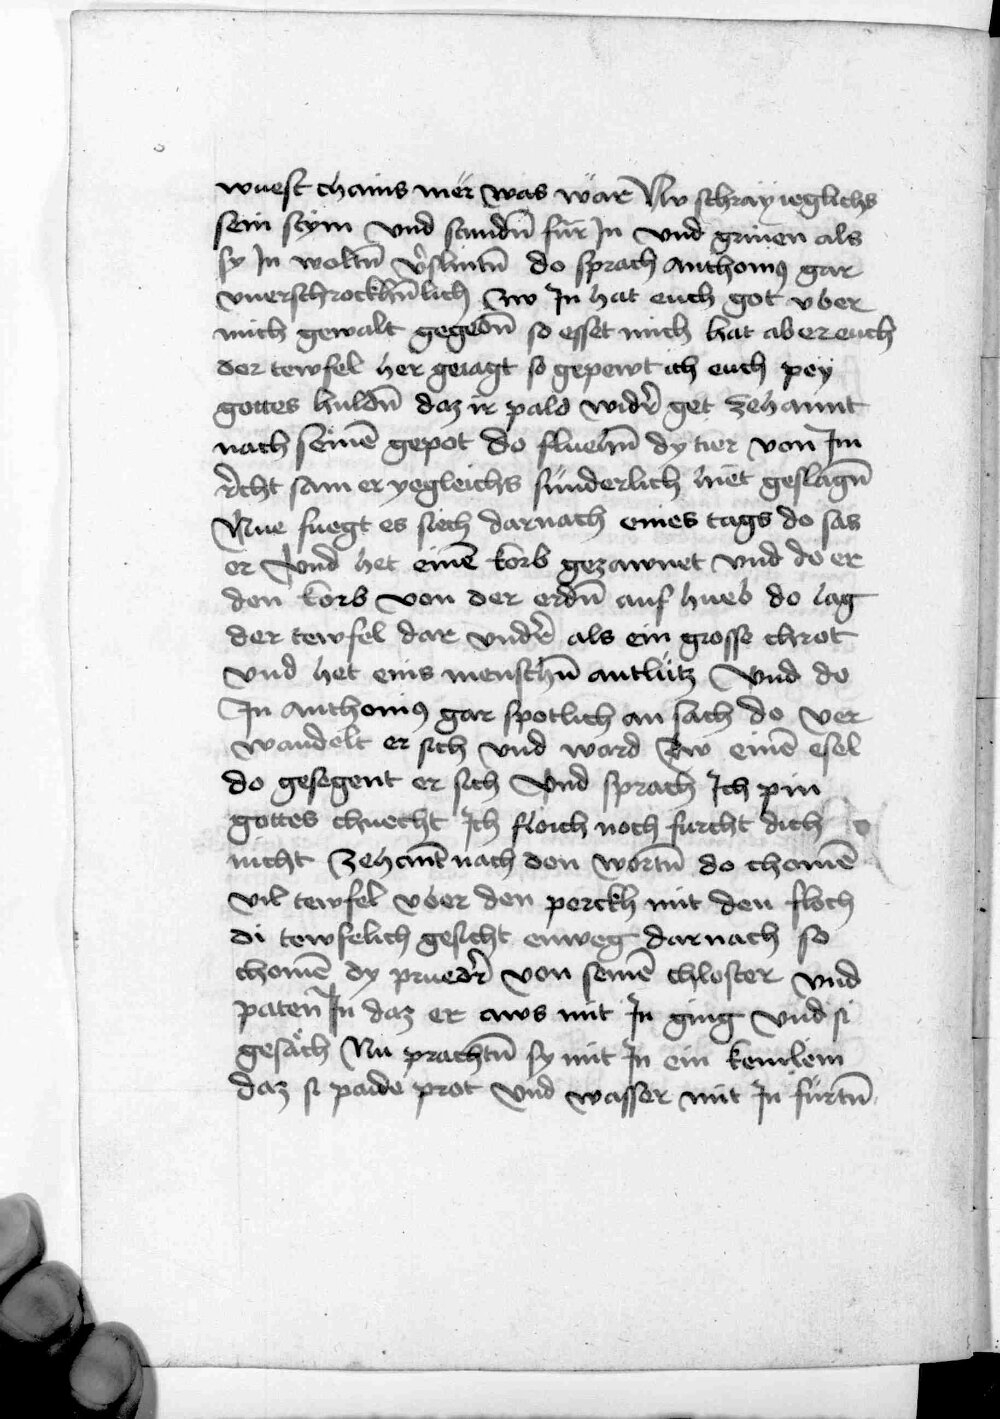 wuest chains mer was wär Nv schray ieglichs
sein stym vnd stundn̄ für In vnd grinen als
sy In woltn̄ v̉slintn̄ do sprach Anthoniꝰ gar
vnerschrockhn̄lich Zw In hat euch got vber
mich gewalt gegebn̄ so esset mich hat aber euch
der tewfel her geiagt so gepewt ich euch pey
gottes huldn̄ daz ir pald widr̉ get Zehannt
nach seinē gepot do fluehn̄ dy tier von Im
r̉cht sam er yegleichs sunderlich hiet geslagn̄
Nue fuegt es siech darnach eines tags do sas
er Vnd het einē korb gezawnet vnd do er
den korb von der erdn̄ auf hueb do lag
der tewfel dar vndr̉ als ein grosse chrot
vnd het eins menschn̄ antlütz Vnd do
In Anthoniꝰ gar spotlich an sach do ver
wandelt er sich vnd ward Zw einē esel
do gesegent er sich Vnd sprach Ich pin
gottes chnecht Ich fleich noch furcht dich
nicht Zehant nach den wortn̄ do chomē
vil tewfel vber den perckh mit den floch
di tewfelich gesicht enweg darnach so
chomē dy pruedr̉ von seinē chloster vnd
paten In daz er aws mit In ging Vnd si
gesäch Nu prachtn̄ sy mit In ein kemlein
daz si paide prot Vnd wasser mit In fürtn̄